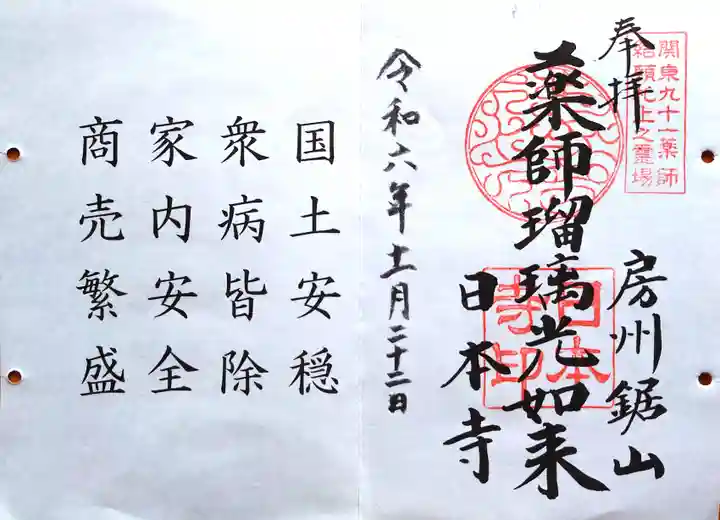 関東九十一薬師
結願尤上之霊場
奉拝
房州鋸山
薬師瑠璃光如来
日本寺
日本
寺印
令和六年十一月二十二日
国土安穏
衆病皆除
家内安全
商売繁盛